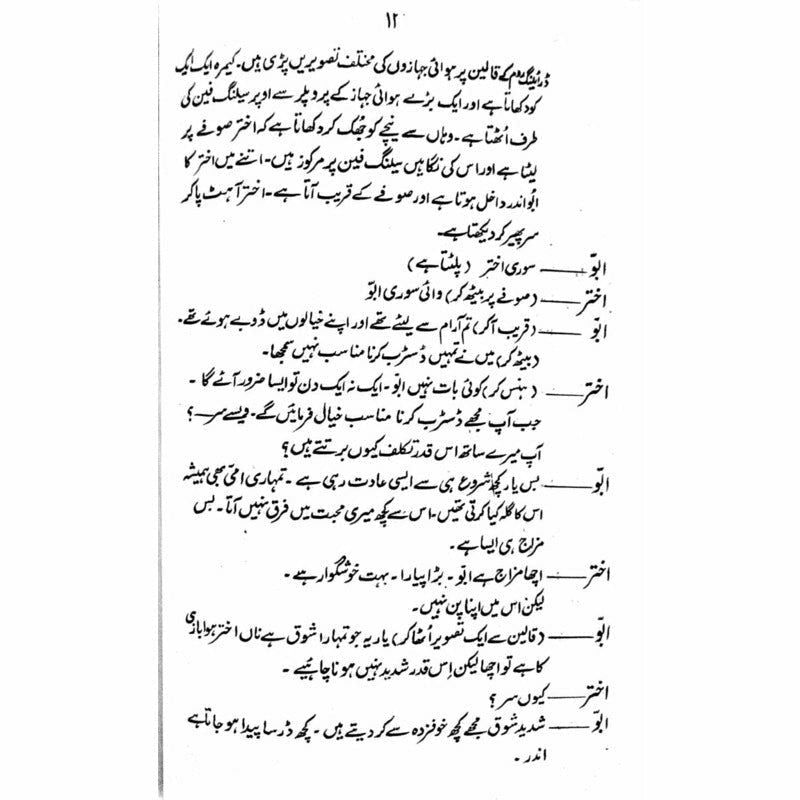 ۱۲
ڈرائینگ روم کے قالین پر ہوائی جہازوں کی مختلف تصویریں پڑی ہیں۔ کیمرہ ایک ایک
کو دکھاتا ہے اور ایک بڑے ہوائی جہاز کے پروپلر سے اوپر سیلنگ فین کی
طرف اُٹھتا ہے۔ وہاں سے نیچے کو جُھک کر دکھاتا ہے کہ اختر صوفے پر
لیٹا ہے اور اس کی نگاہیں سیلنگ فین پر مرکوز ہیں۔ اتنے میں اختر کا
ابّو اندر داخل ہوتا ہے اور صوفے کے قریب آتا ہے۔ اختر آہٹ پا کر
سر پھیر کر دیکھتا ہے۔
ابّو —— سوری اختر (پلٹتا ہے)
اختر —— (صوفے پر بیٹھ کر) وائی سوری ابّو
ابّو —— (قریب آکر) تم آرام سے لیٹے تھے اور اپنے خیالوں میں ڈوبے ہوئے تھے۔
(بیٹھ کر) میں نے تمہیں ڈسٹرب کرنا مناسب نہیں سمجھا۔
اختر —— (ہنس کر) کوئی بات نہیں ابّو۔ ایک نہ ایک دن تو ایسا ضرور آئے گا۔
جب آپ مجھے ڈسٹرب کرنا مناسب خیال فرمائیں گے۔ ویسے سر —؟
آپ میرے ساتھ اس قدر تکلف کیوں برتتے ہیں؟
ابّو —— بس یار کچھ شروع ہی سے ایسی عادت رہی ہے۔ تمہاری امّی بھی ہمیشہ
اس کا گلہ کیا کرتی تھیں۔ اس سے کچھ میری محبت میں فرق نہیں آتا۔ بس
مزاج ہی ایسا ہے۔
اختر —— اچھا مزاج ہے ابّو۔ بڑا پیارا۔ بہت خوشگوار ہے۔
لیکن اس میں اپنا پن نہیں۔
ابّو —— (قالین سے ایک تصویر اُٹھا کر) یار یہ جو تمہارا شوق ہے ناں اختر ہوا بازی
کا ہے تو اچھا لیکن اِس قدر شدید نہیں ہونا چاہئیے۔
اختر —— کیوں سر؟
ابّو —— شدید شوق مجھے کچھ خوفزدہ سے کر دیتے ہیں۔ کچھ ڈر سا پیدا ہو جاتا ہے
اندر۔